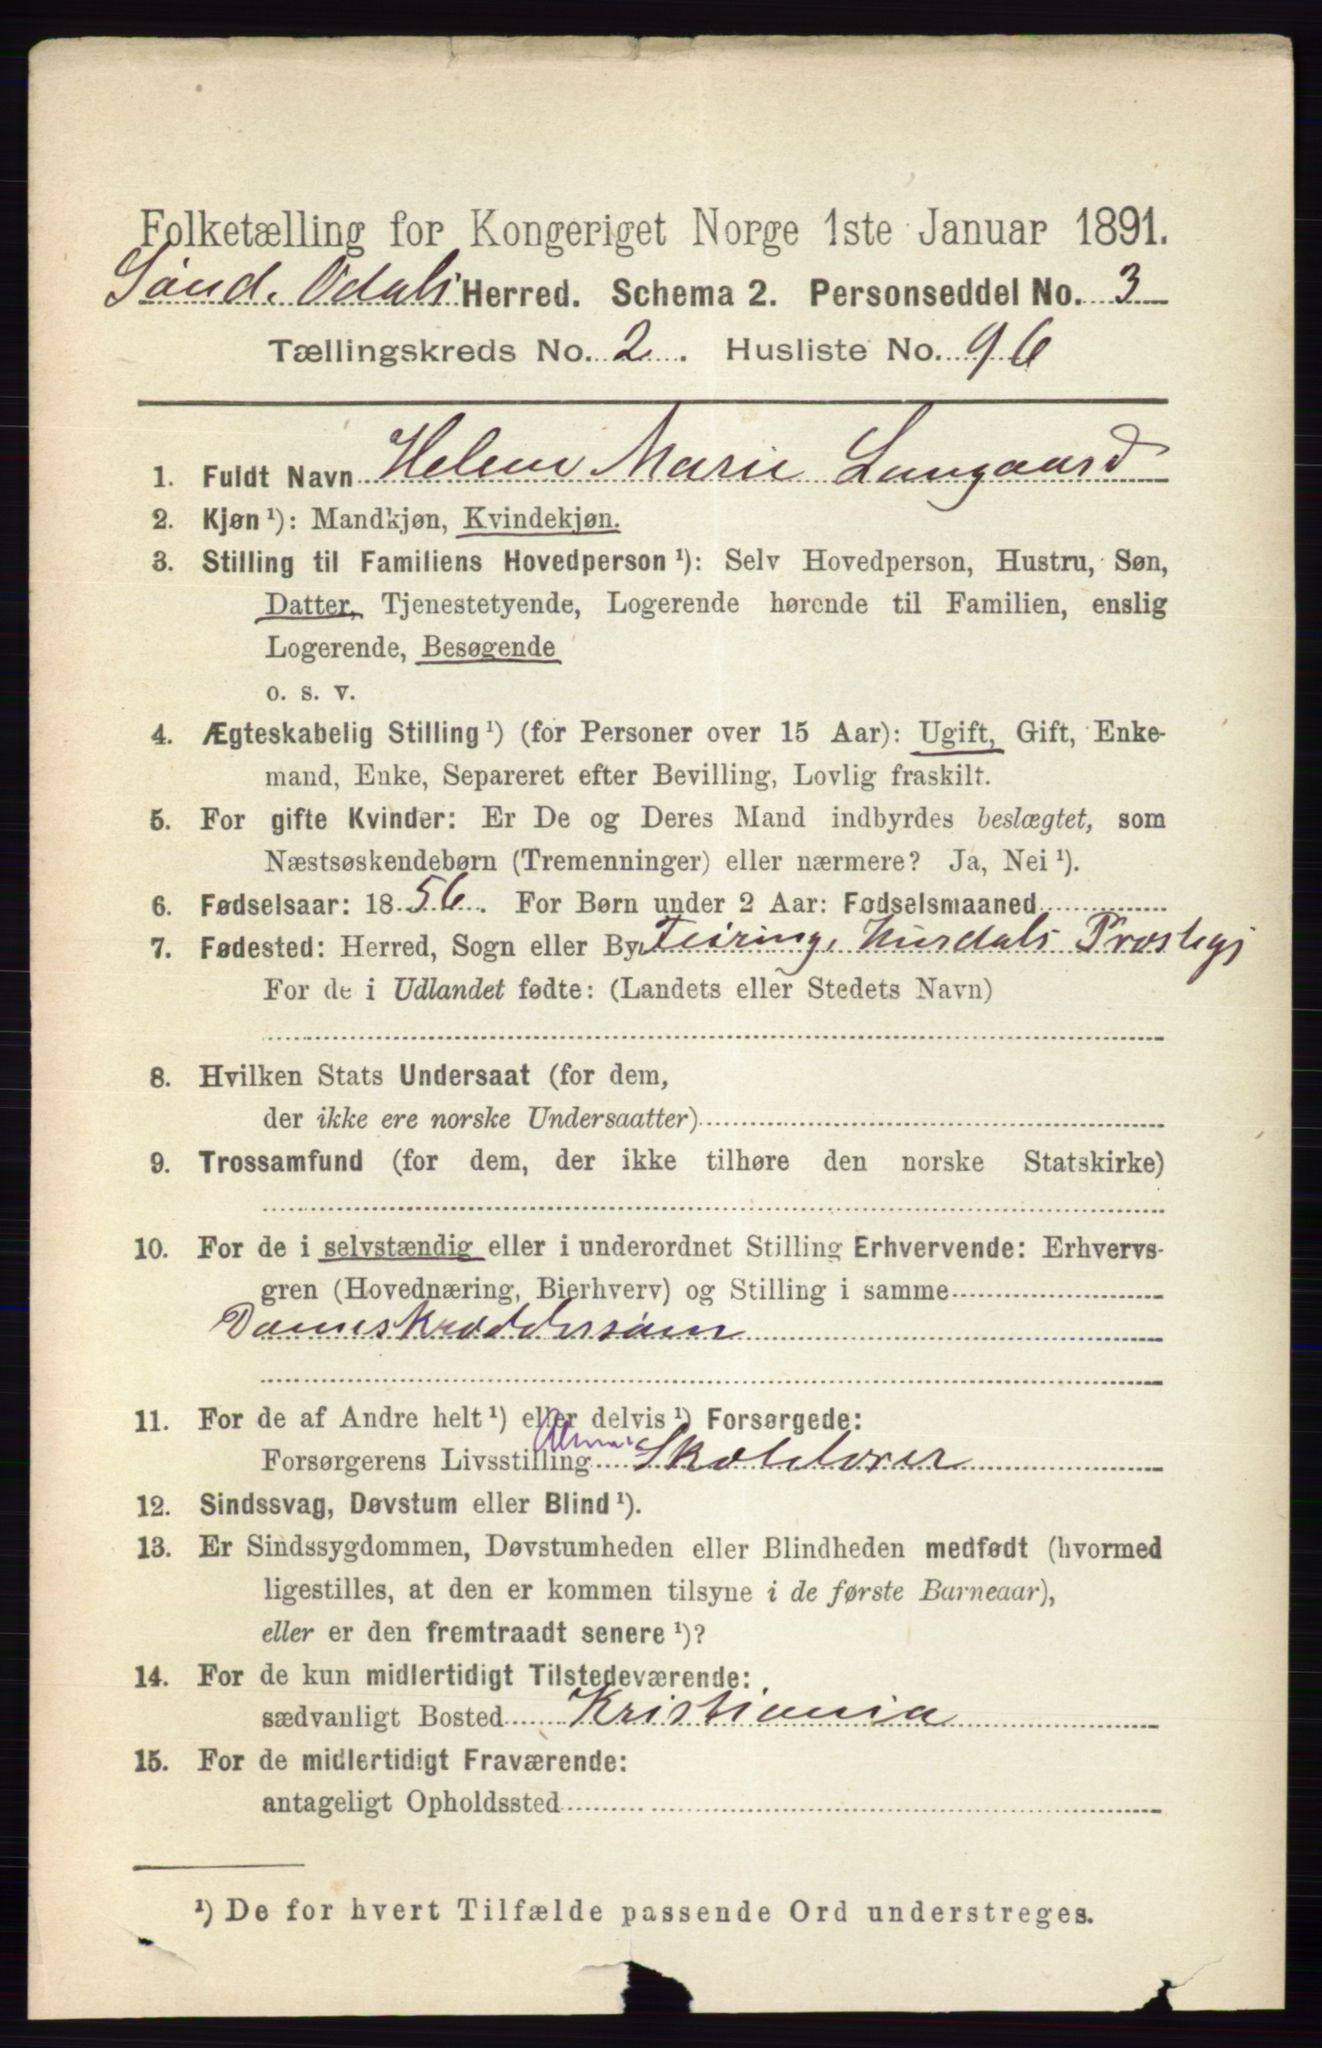 Folketælling for Kongeriget Norge 1ste Januar 1891.
Sønd. Odals Herred. Schema 2. Personseddel No. 3
Tællingskreds No. 2. Husliste No. 96
1. Fuldt Navn Helene Marie Langaard
2. Kjøn ¹): Mandkjøn, Kvindekjøn.
3. Stilling til Familiens Hovedperson ¹): Selv Hovedperson, Hustru, Søn,
Datter, Tjenestetyende, Logerende hørende til Familien, enslig
Logerende, Besøgende
o. s. v.
4. Ægteskabelig Stilling ¹) (for Personer over 15 Aar): Ugift, Gift, Enke-
mand, Enke, Separeret efter Bevilling, Lovlig fraskilt.
5. For gifte Kvinder: Er De og Deres Mand indbyrdes beslægtet, som
Næstsøskendebørn (Tremenninger) eller nærmere? Ja, Nei ¹).
6. Fødselsaar: 1856. For Børn under 2 Aar: Fødselsmaaned
7. Fødested: Herred, Sogn eller By Feiring, Hurdals Præstegj
For de i Udlandet fødte: (Landets eller Stedets Navn)
8. Hvilken Stats Undersaat (for dem,
der ikke ere norske Undersaatter)
9. Trossamfund (for dem, der ikke tilhøre den norske Statskirke)
10. For de i selvstændig eller i underordnet Stilling Erhvervende: Erhvervs-
gren (Hovednæring, Bierhverv) og Stilling i samme
Dameskræddersøm
11. For de af Andre helt ¹) eller delvis ¹) Forsørgede:
Forsørgerens Livsstilling Skolelærer
12. Sindssvag, Døvstum eller Blind ¹).
13. Er Sindssygdommen, Døvstumheden eller Blindheden medfødt (hvormed
ligestilles, at den er kommen tilsyne i de første Barneaar),
eller er den fremtraadt senere ¹)?
14. For de kun midlertidigt Tilstedeværende:
sædvanligt Bosted Kristiania
15. For de midlertidigt Fraværende:
antageligt Opholdssted
¹) De for hvert Tilfælde passende Ord understreges.